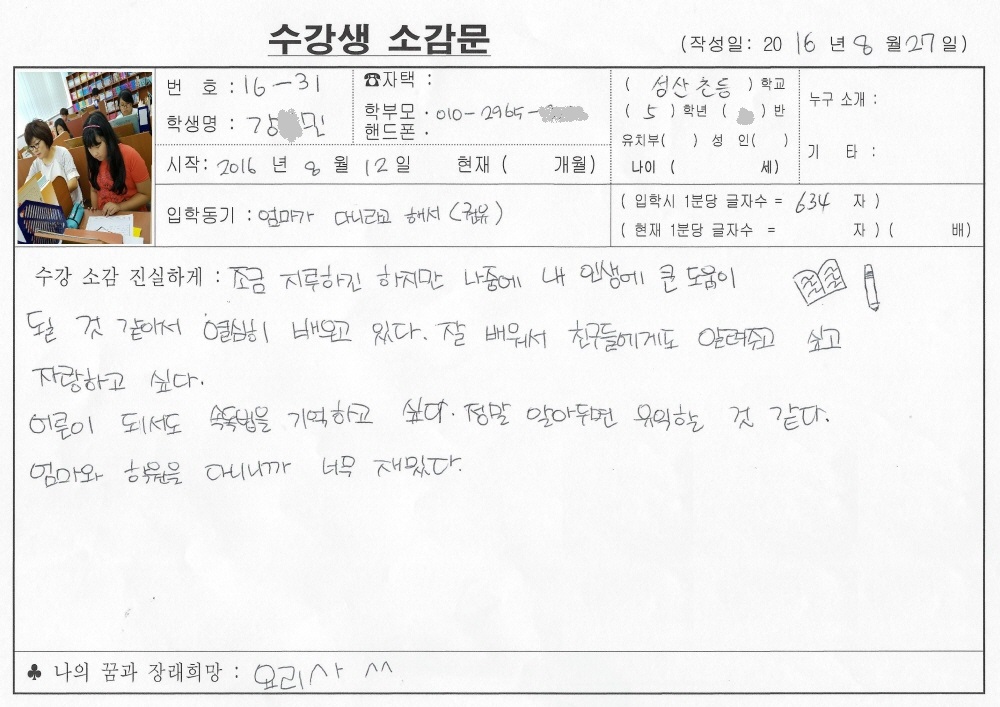 수강생 소감문
(작성일: 2016년 8월 27일)
번 호 : 16-31
☎자택 :
(성산초등)학교
누구 소개 :
학생명 : 강 민
학부모 핸드폰 : 010-2965-
(5)학년 ( )반
유치부( ) 성 인( )
기 타 :
시작: 2016년 8월 12일 현재 ( 개월)
나이 ( 세)
입학동기 : 엄마가 다니라고 해서 (권유)
( 입학시 1분당 글자수 = 634 자 )
( 현재 1분당 글자수 = 자 ) ( 배)
수강 소감 진실하게 : 조금 지루하긴 하지만 나중에 내 인생에 큰 도움이
될 것 같아서 열심히 배우고 있다. 잘 배워서 친구들에게도 알려주고 싶고
자랑하고 싶다.
어른이 되서도 속독법을 기억하고 싶다. 정말 알아두면 유익할 것 같다.
엄마와 학원을 다니니까 너무 재밌다.
♣ 나의 꿈과 장래희망 : 요리사 ^^